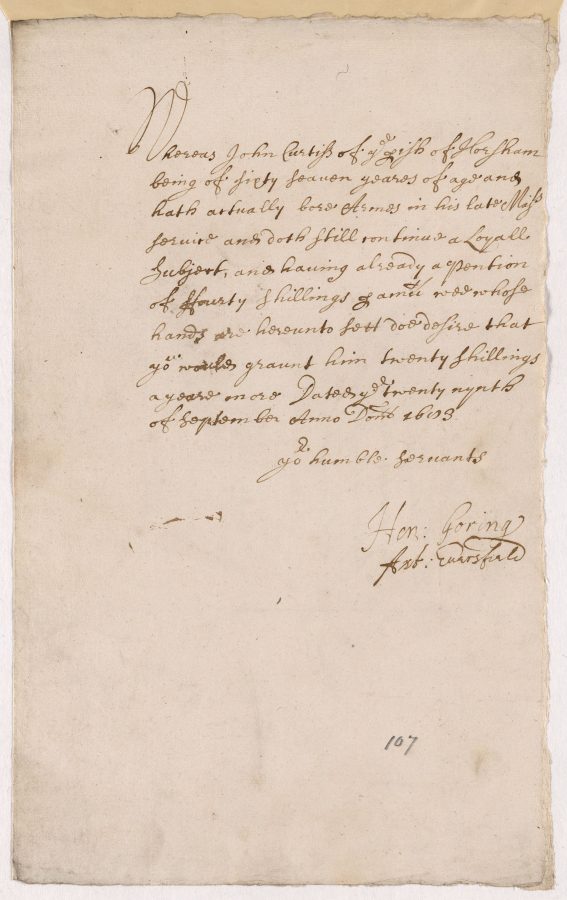 Whereas John Curtiss of ye pish of Horsham
being of sixty seaven yeares of age and
hath actually bore Armes in his late Maties
service and doth still continue a Loyall
Subject, and having already a Pention
of ffourty shillings p annu wee whose
hands are hereunto sett doe desire that
yor would graunt him twenty shillings
a yeare more Dated ye twenty nynth
of September Anno Dom
yor humble servants
Hen: Goring
Art: Eversfield
107